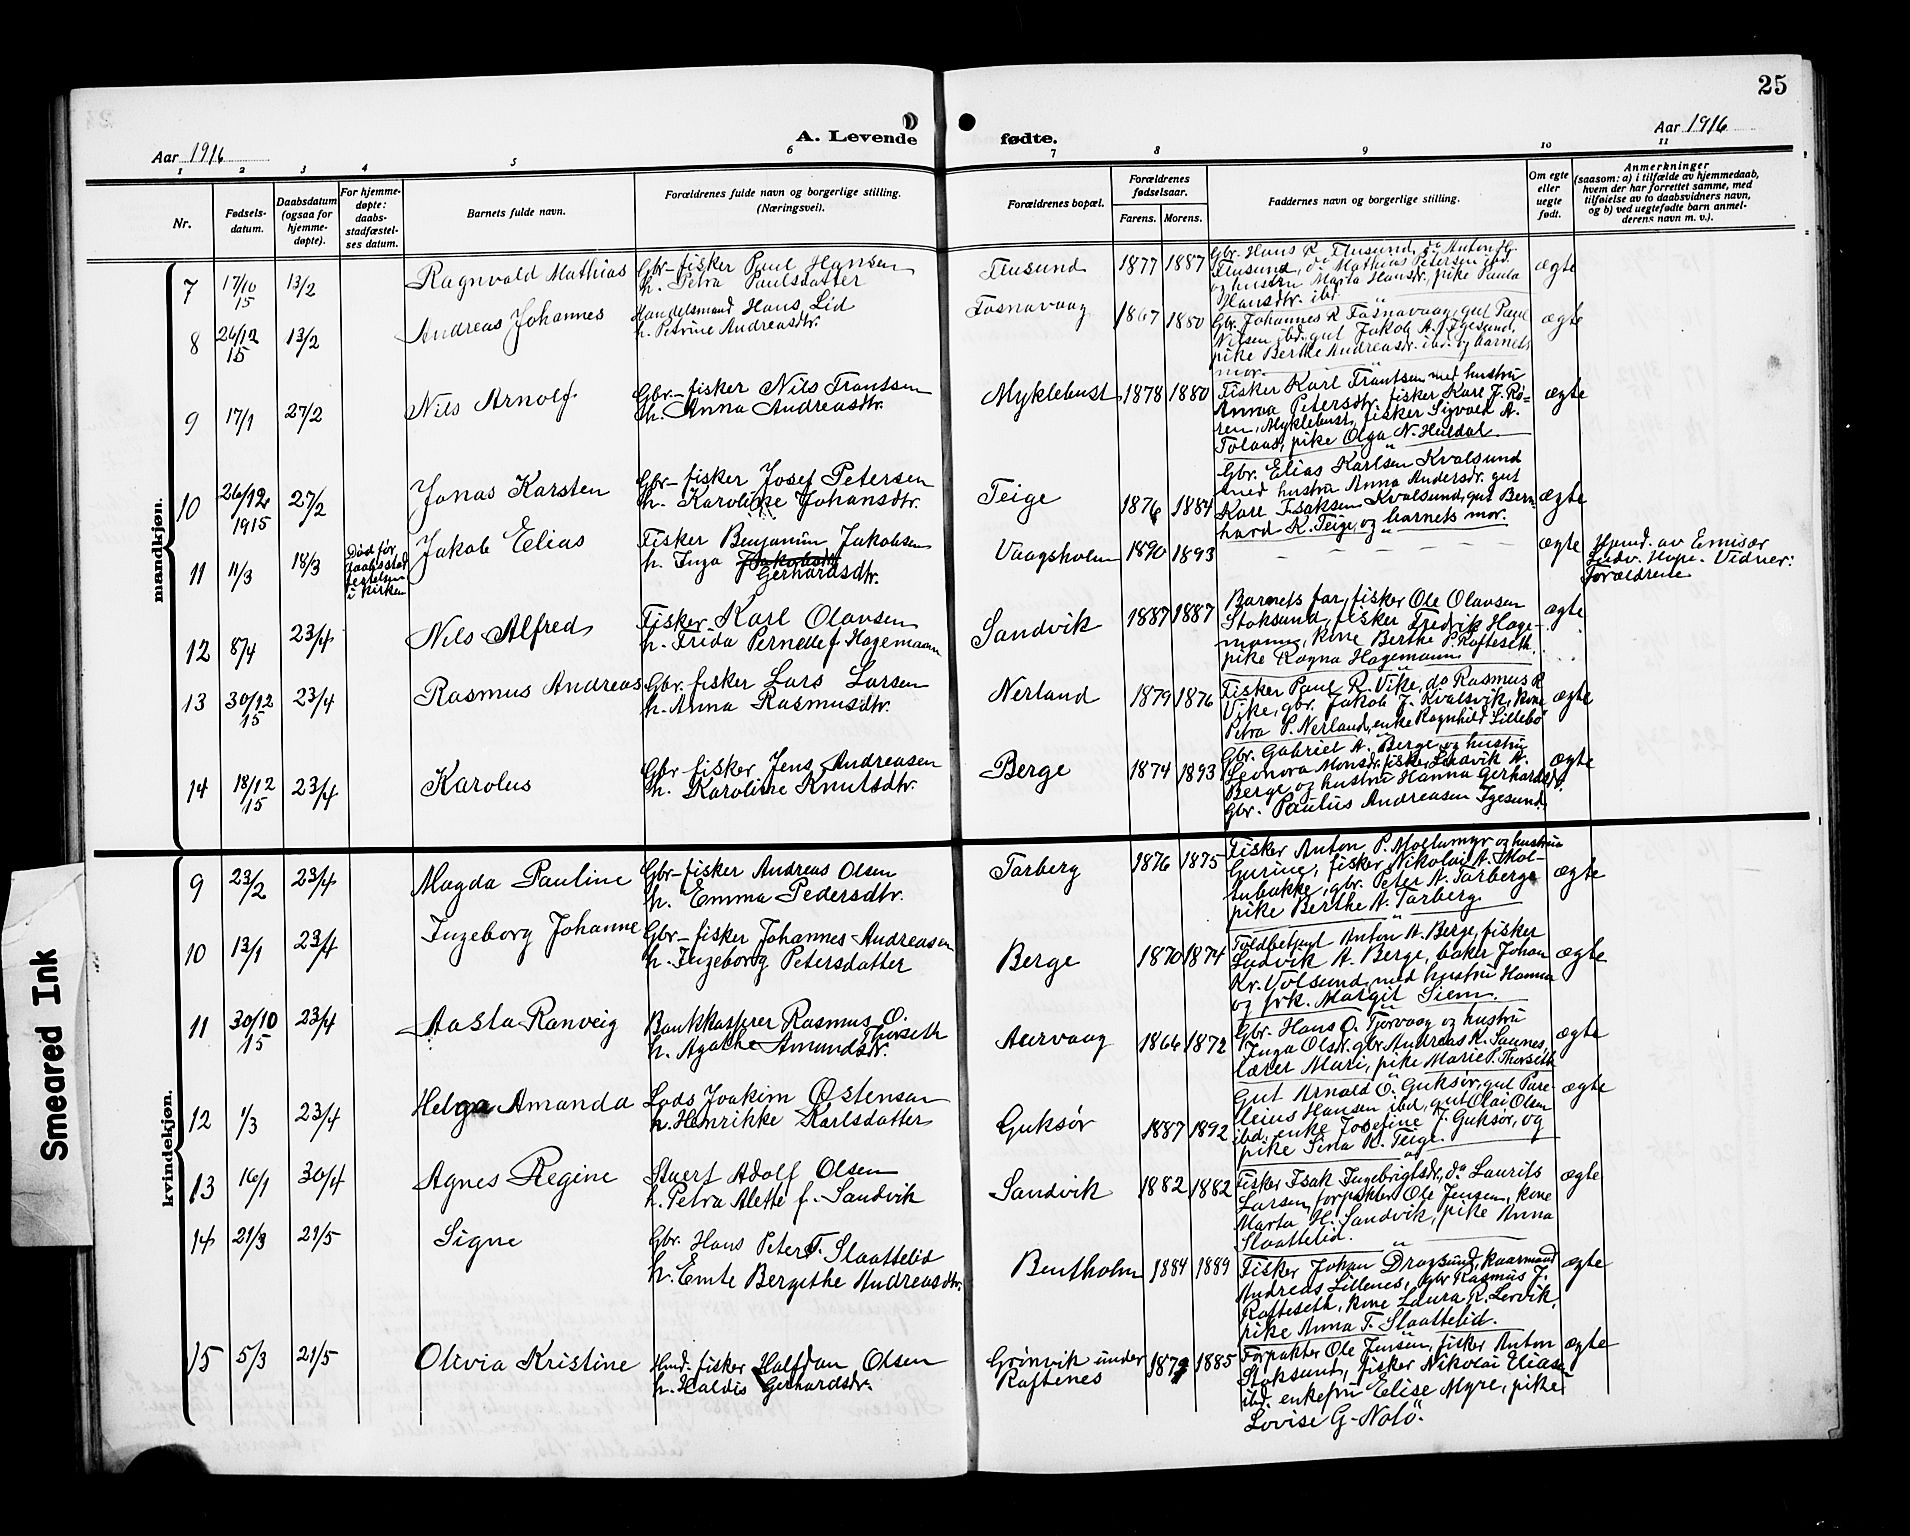 25
A. Levende fødte.
Aar 1916
Aar 1916
1 2 3 4 5 6 7 8 9 10 11
Nr.
Fødsels-
datum.
Daabsdatum
(ogsaa for
hjemme-
døpte).
For hjemme-
døpte:
daabs-
stadfæstel-
ses datum.
Barnets fulde navn.
Forældrenes fulde navn og borgerlige stilling.
(Næringsvei).
Forældrenes bopæl.
Forældrenes
fødselsaar.
Farens. Morens.
Faddernes navn og borgerlige stilling.
Om egte
eller
uegte
født.
Anmerkninger
(saasom: a) i tilfælde av hjemmedaab,
hvem der har forrettet samme, med
tilføielse av to daabsvidners navn,
og b) ved uegtefødte barn anmel-
derens navn m. v.).
mandkjøn.
7 17/10 15 13/2 Ragnvald Mathias
Gbr-fisker Paul Hansen
h. Petra Paulsdatter
Flusund 1877 1887
Gbr. Hans R. Flusund, do Anton G.
Flusund, do Mathias Petersen ibd.
og hustru Marta Hansdr, pike Paula
Hansdtr. ibd.
ægte
8 26/12 15 13/2 Andreas Johannes
Handelsmand Hans Lid
h. Petrine Andreasdtr.
Fosnavaag 1867 1880
Gbr. Johannes R. Fosnavaag, gut Paul
Nilsen ibd, gut Jakob A. Igesund,
pike Berthe Andreasdr. ibd. og barnets
mor.
ægte
9 17/1 27/2 Nils Arnolf
Gbr-fisker Nils Frantsen
h. Anna Andreasdtr.
Myklebust 1878 1880
Fisker Karl Frantsen med hustru
Anna Petersdtr, fisker Karl J. Rö-
ren, Myklebust, fisker Sigvald A.
Tolaas, pike Olga N. Huldal.
ægte
10 26/12 1915 27/2 Jonas Karsten
Gbr-fisker Josef Petersen
h. Karoline Johansdtr.
Teige 1876 1884
Gbr. Elias Karlsen Kvalsund
med hustru Anna Andersdr. gut
Karl Isaksen Kvalsund, gut Bern-
hard K. Teige, og barnets mor.
ægte
11 11/3 18/3
Død før
daabsstad
festelsen
i kirken
Jakob Elias
Fisker Benjamin Jakobsen
h. Inga Jakobsdtr
Gerhardsdtr.
Vaagsholm 1890 1893
ægte
Hjmd. av Emisær
Ludv. Hope. Vidner:
Forældrene
12 8/4 23/4 Nils Alfred
Fisker Karl Olausen
h. Frida Pernelle f. Hagemann
Sandvik 1887 1887
Barnets far, fisker Ole Olausen
Stoksund, fisker Fredrik Hage-
mann, kone Berthe P. Rafteseth.
pike Ragna Hagemann
ægte
13 30/12 15 23/4 Rasmus Andreas
Gbr. fisker Lars Larsen
h. Anna Rasmusdtr.
Nerland 1879 1876
Fisker Paul R. Vike, do Rasmus R.
Vike, gbr. Jakob J. Kvalsvik, kone
Petra P. Nerland, enke Ragnhild Lillebø
ægte
14 18/12 15 23/4 Karolus
Gbr-fisker Jens Andreasen
h. Karoline Knutsdtr.
Berge 1874 1893
Gbr. Gabriel A. Berge og hustru
Leonora Monsdr. fisker Ludvik A.
Berge og hustru Hanna Gerhardsdr.
Gbr. Paulus Andreasen Igesund.
ægte
kvindekjøn.
9 23/2 23/4 Magda Pauline
Gbr-fisker Andreas Olsen
h. Emma Pedersdtr.
Tarberg 1876 1875
Fisker Anton P. Moltumyr og hustru
Gurine, fisker Nikolai A. Mol-
tubakke, gbr. Peter A. Tarberg
pike Berthe A. Tarberg.
ægte
10 13/1 23/4 Ingeborg Johanne
Gbr-fisker Johannes Andreasen
h. Ingeborg Petersdatter
Berge 1870 1874
Toldbetjent Anton A. Berge, fisker
Ludvik A. Berge, baker Johan
Kr. Volsund med hustru Hanna
og frk. Margit Siem.
ægte
11 30/10 15 23/4 Aasta Ranveig
Bankkasserer Rasmus O.
Thorseth
h. Agathe Amundsdtr.
Aurvaag 1866 1872
Gbr. Hans O. Tjørvaag og hustru
Inga Olsdr. gbr Andreas K. Saunes,
lærer Mari, pike Marie P. Thorseth
ægte
12 1/3 23/4 Helga Amanda
Lods Joakim Østensen
h. Henrikke Karlsdatter
Guksør 1887 1892
Gut Arnold O. Guksør, gut Pare-
lius Hansen ibd, gut Olai Olsen
ibd. enke Josefine J. Guksør, og
pike Sina K. Teige.
ægte
13 16/1 30/4 Agnes Regine
Stuert Adolf Olsen
h. Petra Alette f. Sandvik
Sandvik 1882 1882
Fisker Isak Ingebrigtsdr, do Laurits
Larsen, forpakter Ole Jensen, kone
Marta H. Sandvik, pike Anna
Slaattelid.
ægte
14 21/3 21/5 Signe
Gbr. Hans Peter T. Slaattelid
h. Emte Bergithe Andreasdtr.
Bentholm 1884 1889
Fisker Johan Dragsund, kaarmand
Andreas Lillenes, gbr Rasmus J.
Rafteseth, kone Laura R. Leivik,
pike Anna T. Slaattelid.
ægte
15 5/3 21/5 Olivia Kristine
Hmd. fisker Halfdan Olsen
h. Haldis Gerhardsdr.
Grönvik under
Raftenes
1879 1885
Forpakter Ole Jensen, fisker Anton
Stoksund, fisker Nikolai Eliasen
ibd. enkefru Elise Myre, pike
Lovise G. Nolö.
ægte
Smeared Ink